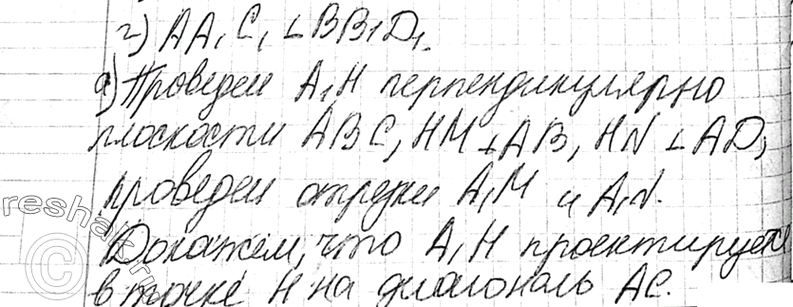 2) AA₁C₁ ⊥ BB₁D₁.
а) Проведем A₁H перпендикулярно
плоскости ABC, HM ⊥ AB, HN ⊥ AD,
проведем отрезки A₁M и A₁N.
Докажем, что A₁H проектируется
в точке H на диагональ AC.
reshak.ru